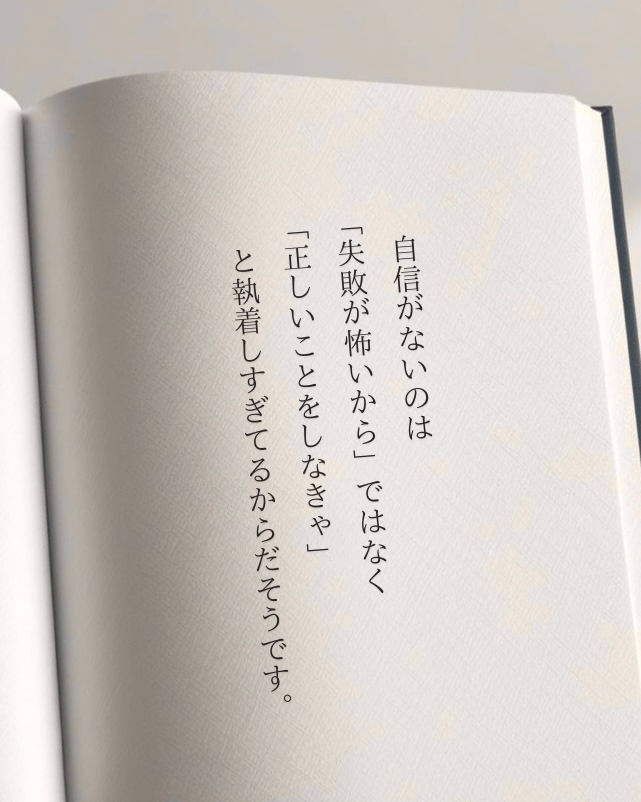 自信がないのは
「失敗が怖いから」ではなく
「正しいことをしなきゃ」
と執着しすぎてるからだそうです。